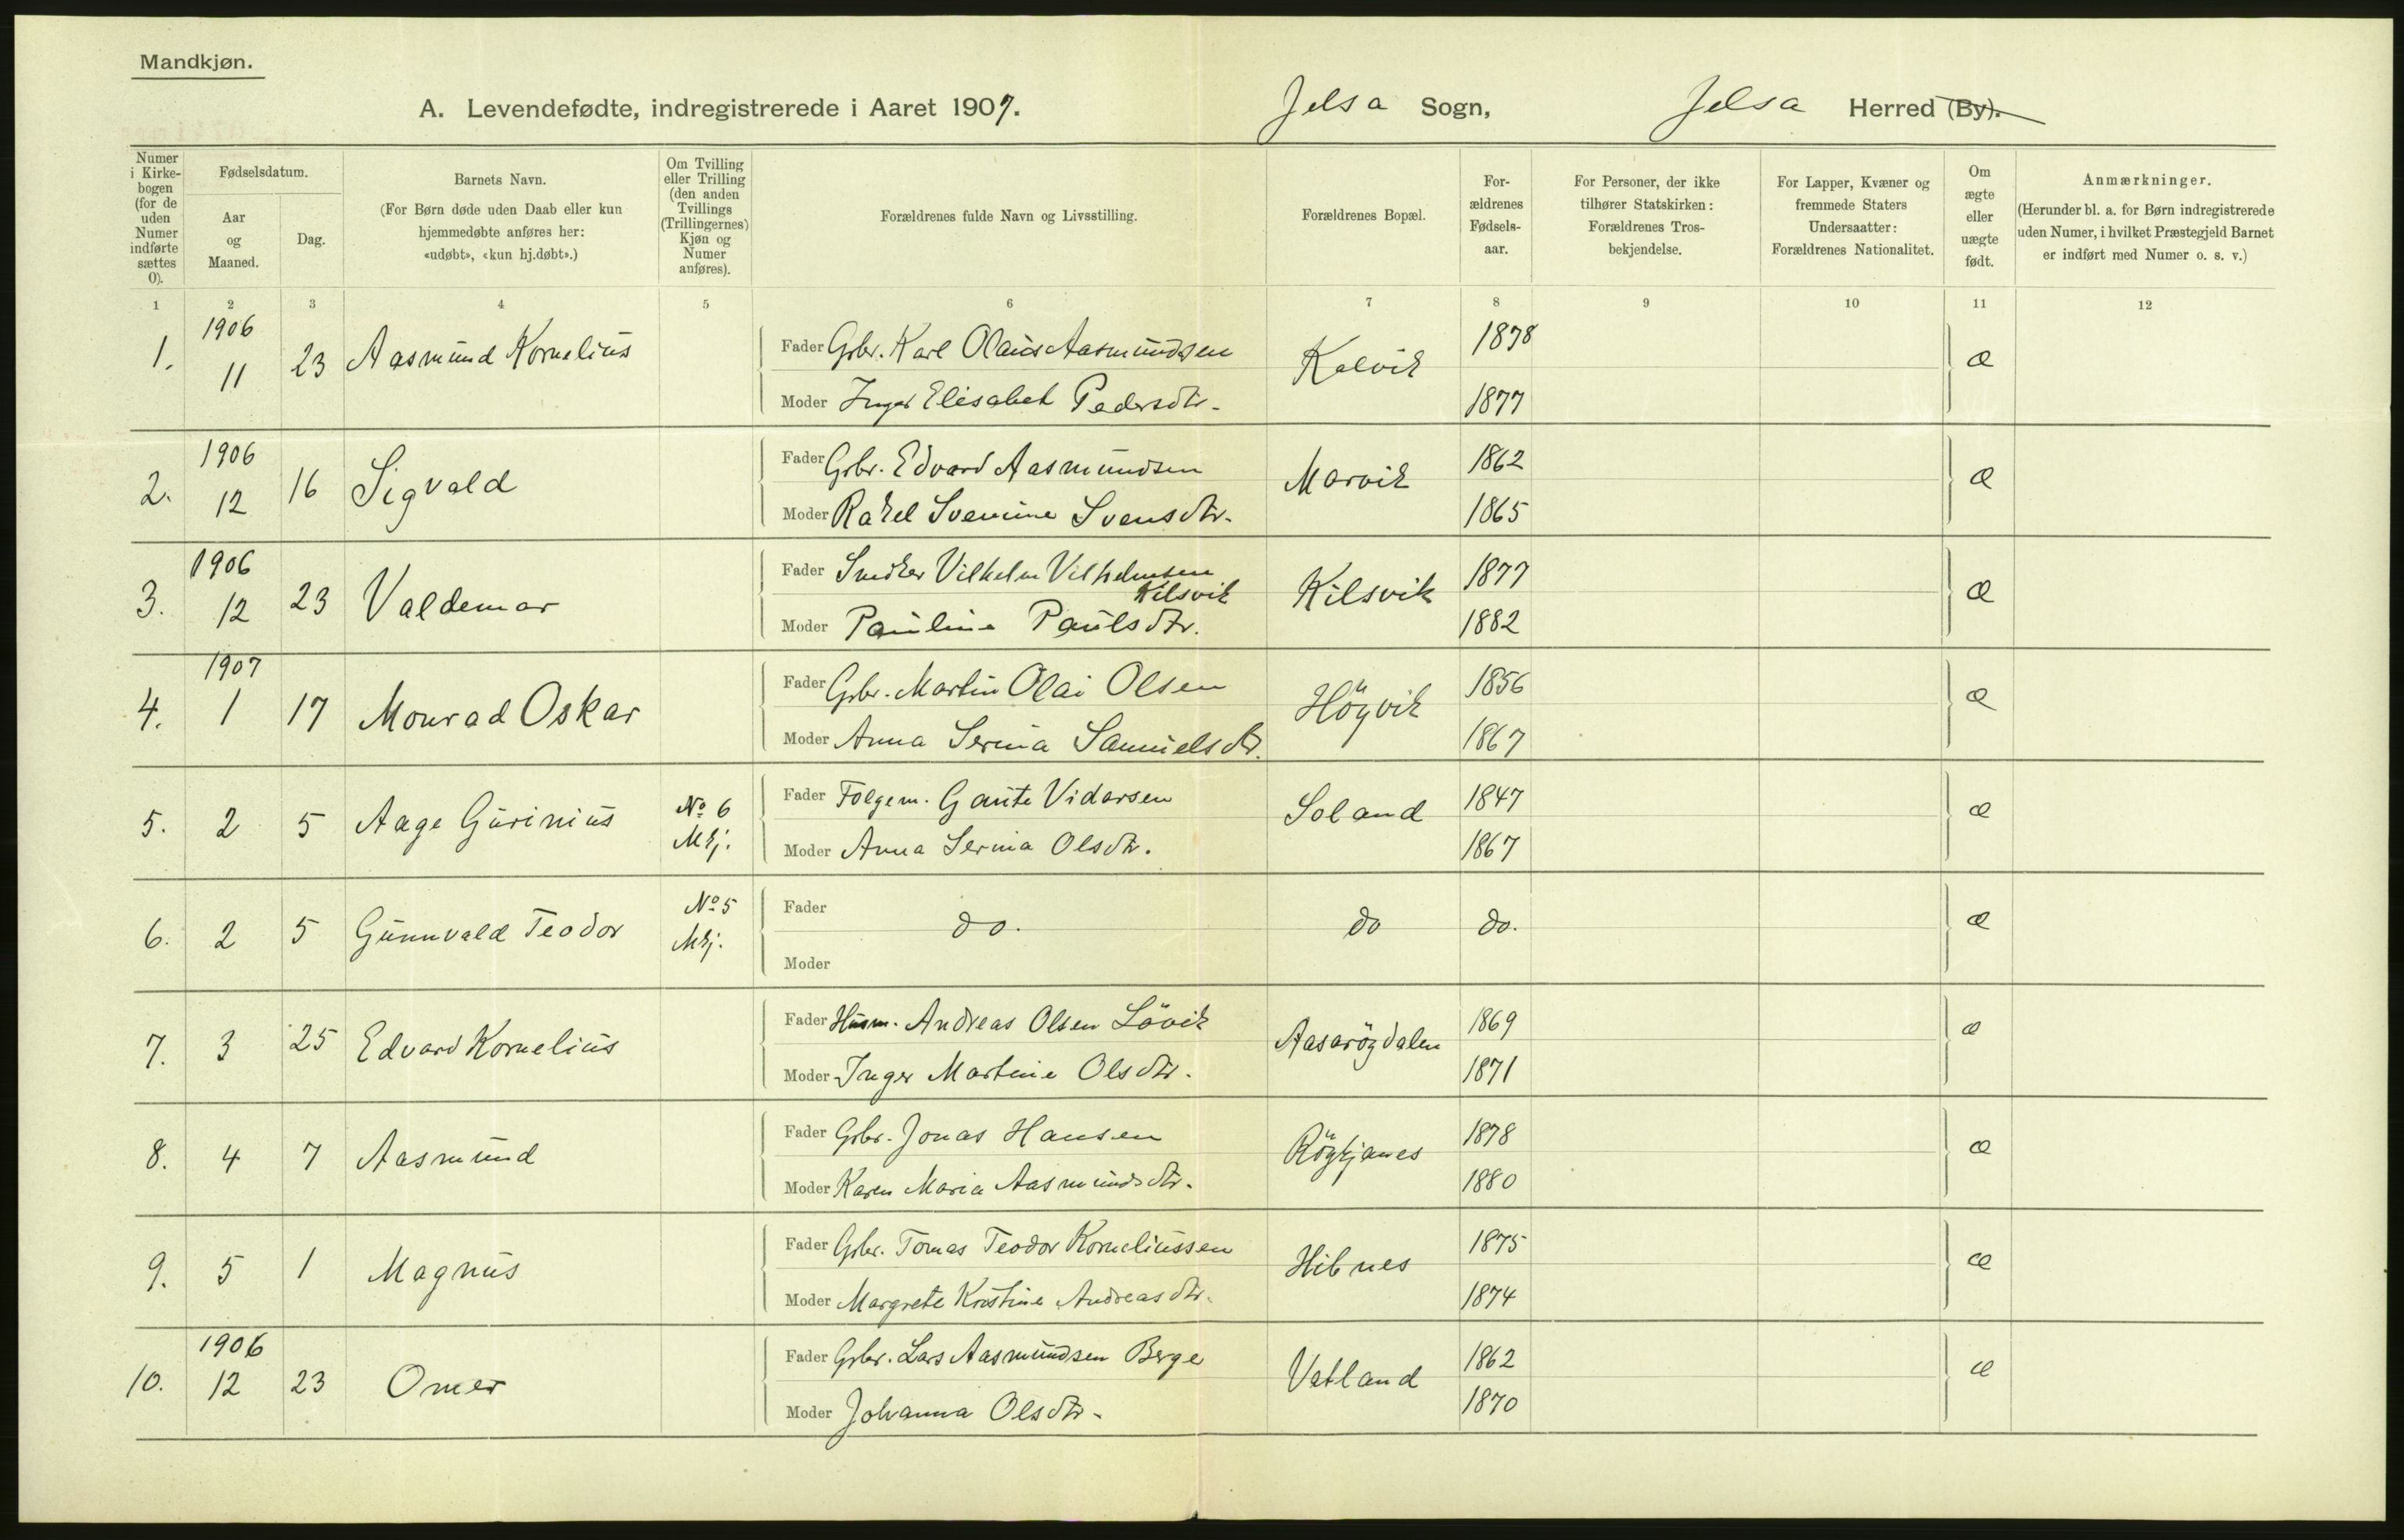 Mandkjøn.
A. Levendefødte, indregistrerede i Aaret 1907. Jelsa Sogn, Jelsa Herred (By).
Numer i Kirkebogen (for de uden Numer indførte sættes 0).
Fødselsdatum.
Aar og Maaned.
Dag.
Barnets Navn.
(For Børn døde uden Daab eller kun hjemmedøbte anføres her: «udøbt», «kun hj.døbt».)
Om Tvilling eller Trilling (den anden Tvillings (Trillingernes) Kjøn og Numer anføres).
Forældrenes fulde Navn og Livsstilling.
Forældrenes Bopæl.
Forældrenes Fødselsaar.
For Personer, der ikke tilhører Statskirken: Forældrenes Trosbekjendelse.
For Lapper, Kvæner og fremmede Staters Undersaatter: Forældrenes Nationalitet.
Om ægte eller uægte født.
Anmærkninger.
(Herunder bl. a. for Børn indregistrerede uden Numer, i hvilket Præstegjeld Barnet er indført med Numer o. s. v.)
1 2 3 4 5 6 7 8 9 10 11 12
1. 1906 11 23 Aasmund Kornelius Fader Gbr. Karl Olaus Aasmundsen Kalvik 1878 æ
Moder Inger Elisabet Pedersdtr. 1877
2. 1906 12 16 Sigvald Fader Gbr. Edvard Aasmundsen Marvik 1862 æ
Moder Rakel Svenine Svensdtr. 1865
3. 1906 12 23 Valdemar Fader Snedker Vilhelm Vilhelmsen Kilsvik Kilsvik 1877 æ
Moder Pauline Paulsdtr. 1882
4. 1907 1 17 Monrad Oskar Fader Gbr. Martin Olai Olsen Högvik 1856 æ
Moder Anna Serina Samuelsdtr. 1867
5. 2 5 Aage Gurinius No 6 Mkj. Fader Folgem. Gaute Vidarsen Soland 1847 æ
Moder Anna Serina Olsdtr. 1867
6. 2 5 Gunnvald Teodor No 5 Mkj. Fader do. do do. æ
Moder
7. 3 25 Edvard Kornelius Fader Husm. Andreas Olsen Lövik Aasarögdalen 1869 æ
Moder Inger Martine Olsdtr. 1871
8. 4 7 Aasmund Fader Gbr. Jonas Hansen Rögkjanes 1878 æ
Moder Karen Maria Aasmundsdtr. 1880
9. 5 1 Magnus Fader Gbr. Tomas Teodor Korneliussen Hibnes 1875 æ
Moder Margrete Kristine Andreasdtr. 1874
10. 1906 12 23 Omer Fader Gbr. Lars Aasmundsen Berge Vatland 1862 æ
Moder Johanna Olsdtr. 1870